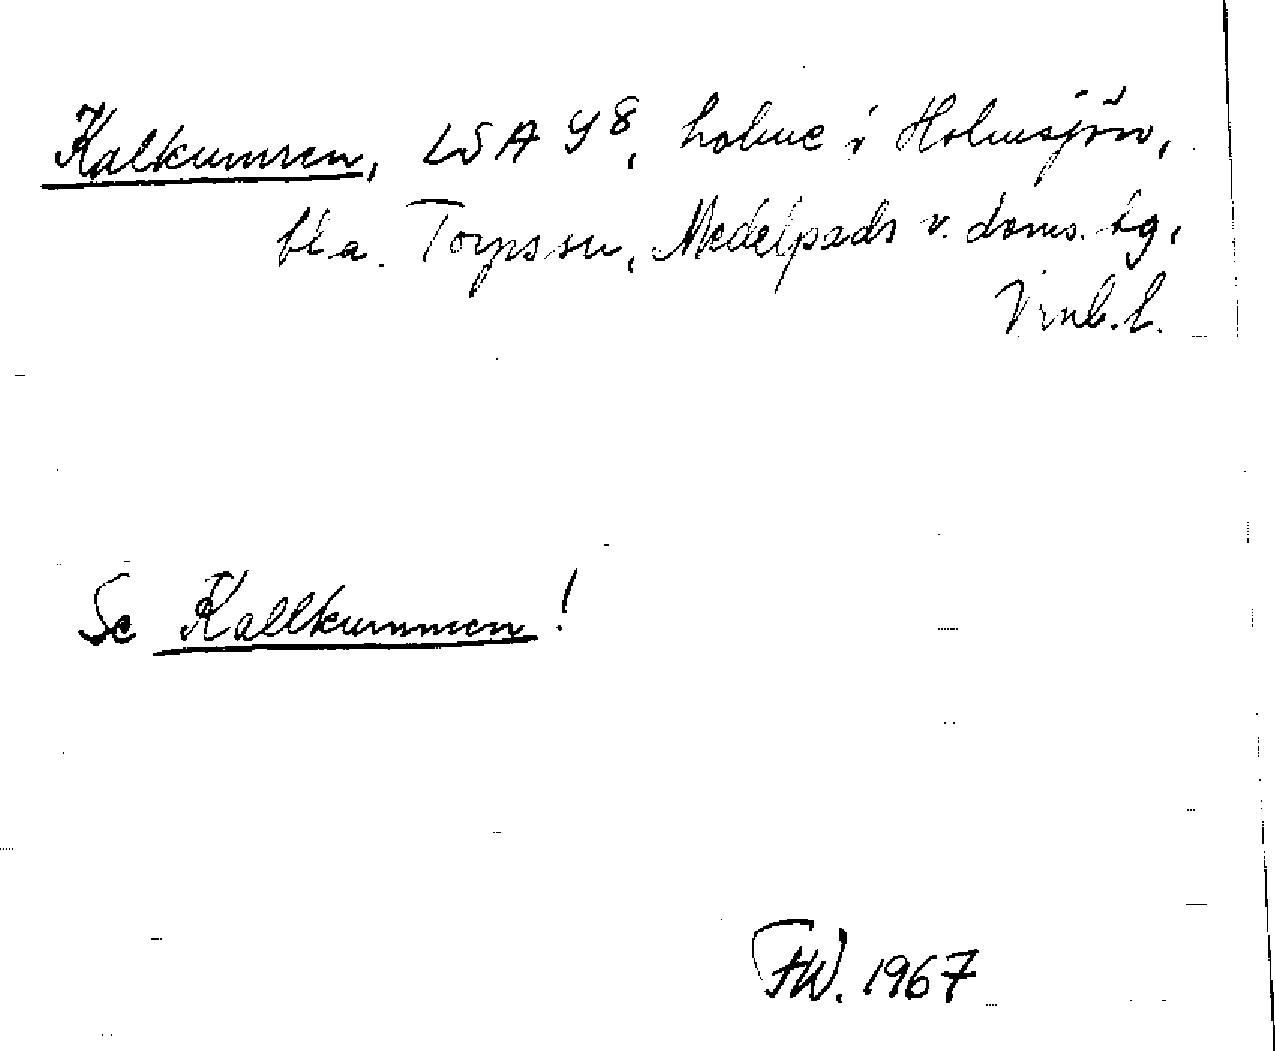 Kalkummen, LSA Y8, holme i Holmsjön,
bl a. Torpssn, Medelpads v. doms. tg,
Vnb. l.
Se Kallkummen!
FW. 1967